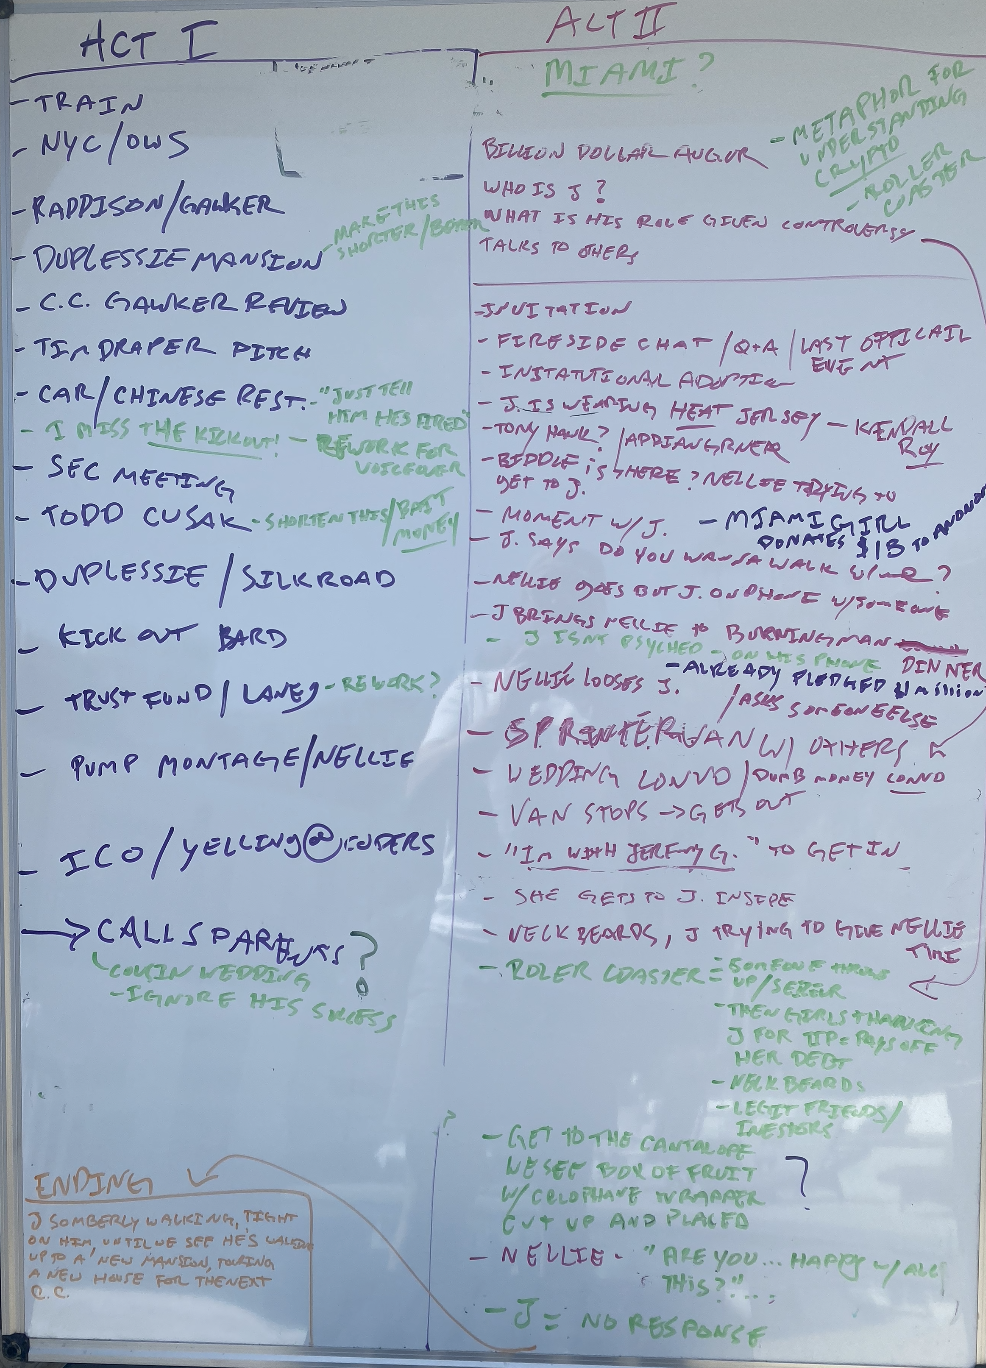 ACT I
- TRAIN
- NYC/OWS
- RADDISON/GAWKER
- DUPLESSIE MANSION
- MAKE THIS
SHORTER/BETTER
- C.C. GAWKER REVIEW
- TIM DRAPER PITCH
- CAR/CHINESE REST. - "JUST TELL
HIM HES FIRED"
- I MISS THE KICKOUT! - REWORK FOR
VOICEOVER
- SEC MEETING
- TODD CUSAK - SHORTEN THIS/BAIT
MONEY
- DUPLESSIE/SILKROAD
- KICK OUT BARD
- TRUST FUND/LANEY - REWORK?
- PUMP MONTAGE/NELLIE
- ICO/YELLING @ CODERS
→ CALLS PARENTS?
COUSIN WEDDING
- IGNORE HIS SUCCESS
ENDING
J SOMBERLY WALKING, TIGHT
ON HIM, UNTIL WE SEE HE'S WALKING
UP TO A NEW MANSION, TOURING
A NEW HOUSE FOR THE NEXT
C.C.
ACT II
MIAMI?
- METAPHOR FOR
UNDERSTANDING
CRYPTO
- ROLLER
COASTER
BILLION DOLLAR
WHO IS J?
WHAT IS HIS ROLE GIVEN CONTROVERSY
TALKS TO OTHERS
- INVITATION
- FIRESIDE CHAT/Q+A/LAST OFFICAIL
EVENT
- INSTATUTIONAL ADOPTION
- J. IS WEARING HEAT JERSEY - KENDALL
ROY
- TONY HAWK?/
- BIDDLE IS HERE? NELLIE TRYING TO
GET TO J.
- MOMENT W/ J. - MIAMI GIRL
DONATES $1B TO
- J. SAYS DO YOU WANNA WALK W/ME?
- NELLIE DOES BUT J. ON PHONE W/SOMEONE
- J BRINGS NELLIE TO BURNINGMAN
DINNER
- J ISNT PSYCHED - ON HIS PHONE
- NELLIE LOOSES J. - ALREADY PLEDGED
/ASKS SOMEONE ELSE
- SPRINTER VAN W/ OTHERS
- WEDDING CONVO/DUMB MONEY CONVO
- VAN STOPS → GETS OUT
- "IM WITH JEREMY G." TO GET IN
- SHE GETS TO J. INSIDE
- NECKBEARDS, J TRYING TO GIVE NELLIE
TIME
- ROLER COASTER = SOMEONE THROWS
UP/SEIZER
- THEN GIRLS THANKING
J FOR TIP = PAYS OFF
HER DEBT
- NECKBEARDS
- LEGIT FRIENDS/
INESTERS
?
- GET TO THE CANTALOPE
WE SEE BOX OF FRUIT
W/ CELOPHANE WRAPPER
CUT UP AND PLACED
?
- NELLIE - "ARE YOU... HAPPY W/ ALL
THIS?"...
- J = NO RESPONSE